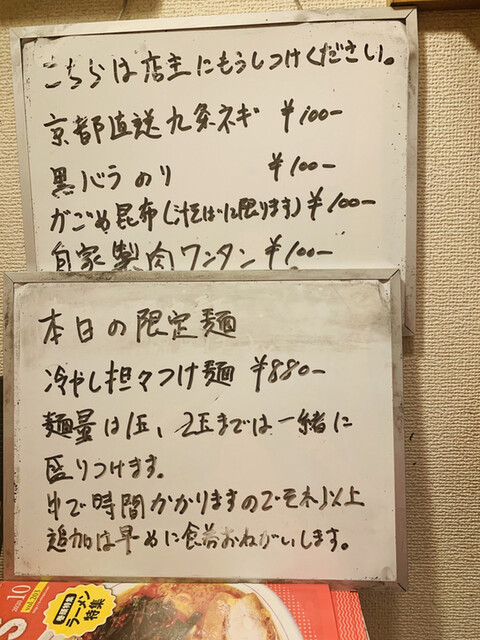 こちらは店主にもうしつけください。
京都直送九条ネギ ¥100-
黒バラのり ¥100-
がごめ昆布(汁そばに限ります)¥100-
自家製肉ワンタン ¥100-
本日の限定麺
冷やし担々つけ麺 ¥880-
麺量は1玉、2玉までは一緒に
盛りつけます。
ゆで時間かかりますのでそれ以上
追加は早めに食券おねがいします。
10
ラーメン
特集
S